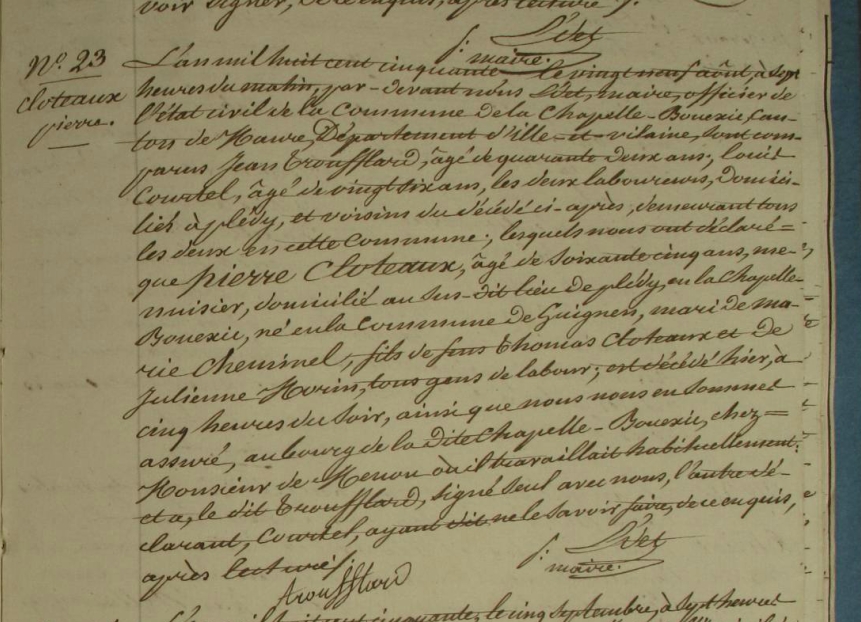 voir signer, de ce enquis, après lecture /.
f: Lizet
maire.
N.º 23
Cloteaux
pierre.
L'an mil huit cent cinquante le vingt neuf août, à sept
heures du matin, par-devant nous Lizet, maire, officier de
l'état civil de la Commune de la Chapelle-Bouexic, can-
ton de Maure, Département d'ille-et-vilaine, sont com-
parus Jean Troufflard, âgé de quarante deux ans; louis
Courtel, âgé de vingt six ans, les deux laboureurs, domici-
liés à plédy, et voisins du décédé ci-après, demeurant tous
les deux en cette Commune; lesquels nous ont déclaré=
que pierre Cloteaux, âgé de soixante cinq ans, me-
nuisier, domicilié au sus-dit lieu de plédy, en la Chapelle-
Bouexic, né en la Commune de Guignen, mari de ma-
rie Cheminel, fils de feus Thomas Cloteaux et de
Julienne Morin, tous gens de labour; est décédé hier, à
cinq heures du soir, ainsi que nous nous en sommes
assuré, au bourg de la dite Chapelle-Bouexic, chez=
Monsieur de Menou où il travaillait habituellement.
et a, le dit Troufflard, signé seul avec nous, l'autre dé-
clarant, Courtel, ayant dit ne le savoir faire, de ce enquis,
après lecture /.
f: Lizet
maire.
Troufflard
L'an mil huit cent cinquante, le cinq septembre, à sept heures